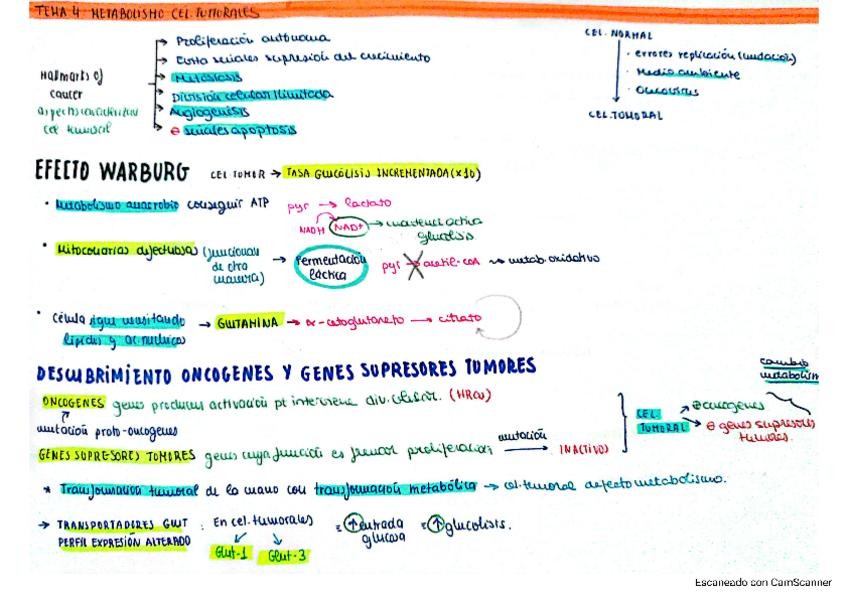 TEMA 4. METABOLISMO CEL. TUMORALES
Hallmarks of cancer
aspectos característicos cel tumoral
→ Proliferación autónoma
→ Evita señales supresión del crecimiento
→ Metástasis
→ División celular ilimitada
→ Angiogénesis
→ ⊖ señales apoptosis
CEL. NORMAL
· errores replicación (mutación)
· Medio ambiente
· Oncovirus
CEL. TUMORAL
EFECTO WARBURG CEL TUMOR → TASA GLUCÓLISIS INCREMENTADA (x10)
· Metabolismo anaerobio conseguir ATP pyr → lactato
NADH NAD+ → mantener activa
glucolisis
· Mitocondrias defectuosas (funcionan
de otra
manera) → Fermentación
láctica
pyr → acetil-CoA → metab. oxidativo
· Célula sigue necesitando → GLUTAMINA → α-cetoglutarato → citrato
lípidos y ac. nucleicos
DESCUBRIMIENTO ONCOGENES Y GENES SUPRESORES TUMORES
ONCOGENES genes producen activación pt interviene div. celular.
mutación proto-oncogenes
GENES SUPRESORES TUMORES genes cuya función es frenar proliferación mutación → INACTIVOS
CEL.
TUMORAL
⊕ oncogenes
⊖ genes supresores
tumores.
cambio
metabolism
* Transformación tumoral de la mano con transformación metabólica → cel. tumoral defecto metabolismo.
→ TRANSPORTADORES GLUT : En cel. tumorales = ↑ entrada glucosa = ↑ glucolisis.
PERFIL EXPRESIÓN ALTERADO
Glut-1 Glut-3
Escaneado con CamScanner